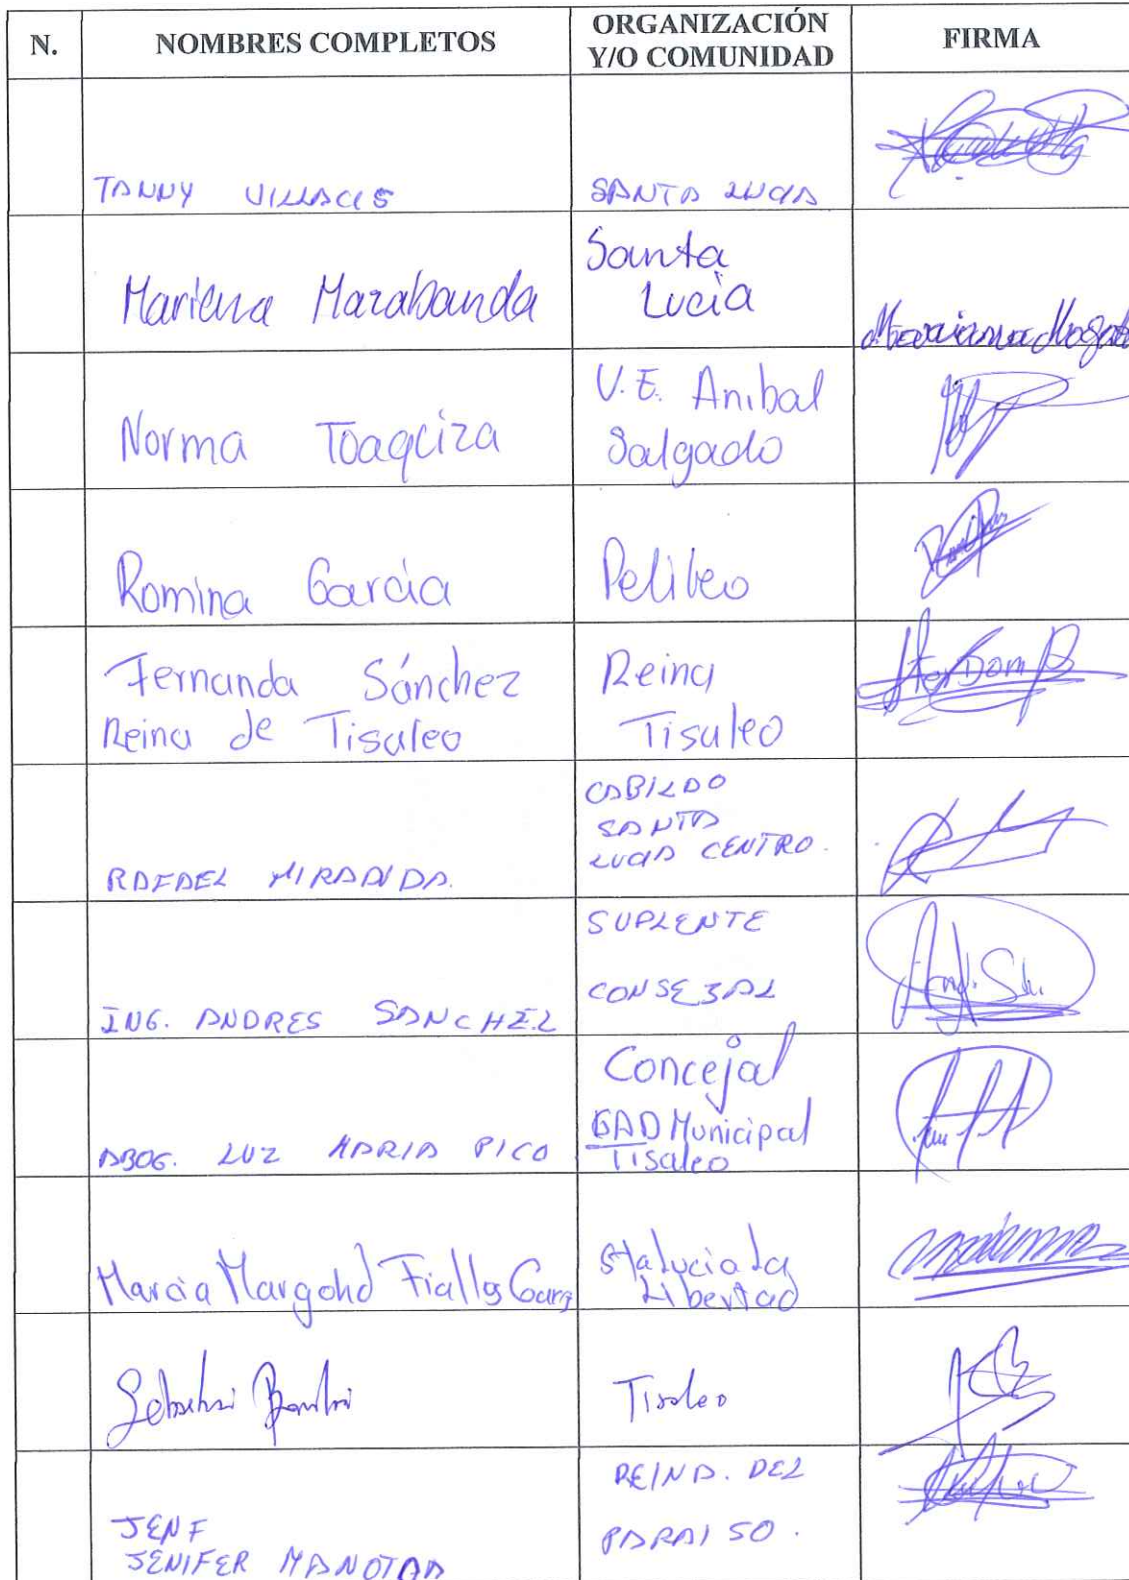 N. NOMBRES COMPLETOS ORGANIZACIÓN Y/O COMUNIDAD FIRMA
TANNY VILLACIS SANTA LUCIA
Mariana Masabanda Santa
Lucia
Norma Toaquiza V.E. Anibal
Salgado
Romina García Pelileo
Fernanda Sánchez Reina
Reina de Tisaleo Tisaleo
RAFAEL MIRANDA. CABILDO
SANTA
LUCIA CENTRO.
ING. ANDRES SANCHEZ SUPLENTE
CONSEJAL
ABOG. LUZ MARIA PICO Concejal
GAD Municipal
Tisaleo
Marcia Margoth Fiallos Sta Lucia La
Libertad
Tisaleo
JENF REINA. DEL
JENIFER PARAISO.